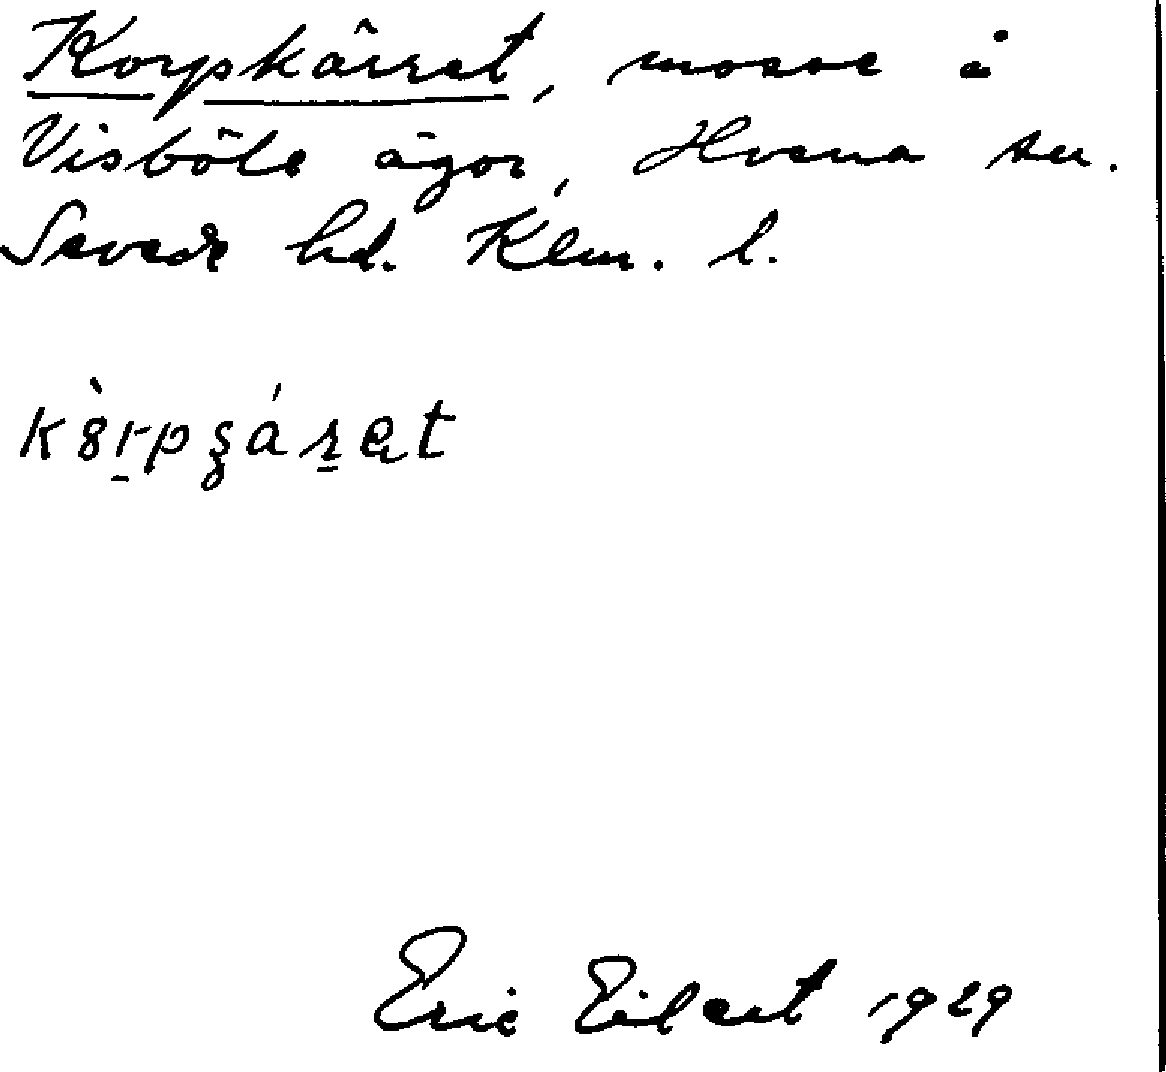 Korpkärret, mosse å
Visböle ägor, Hvena sn.
Sevede hd. Klm. l.
Eric Eilert 1929